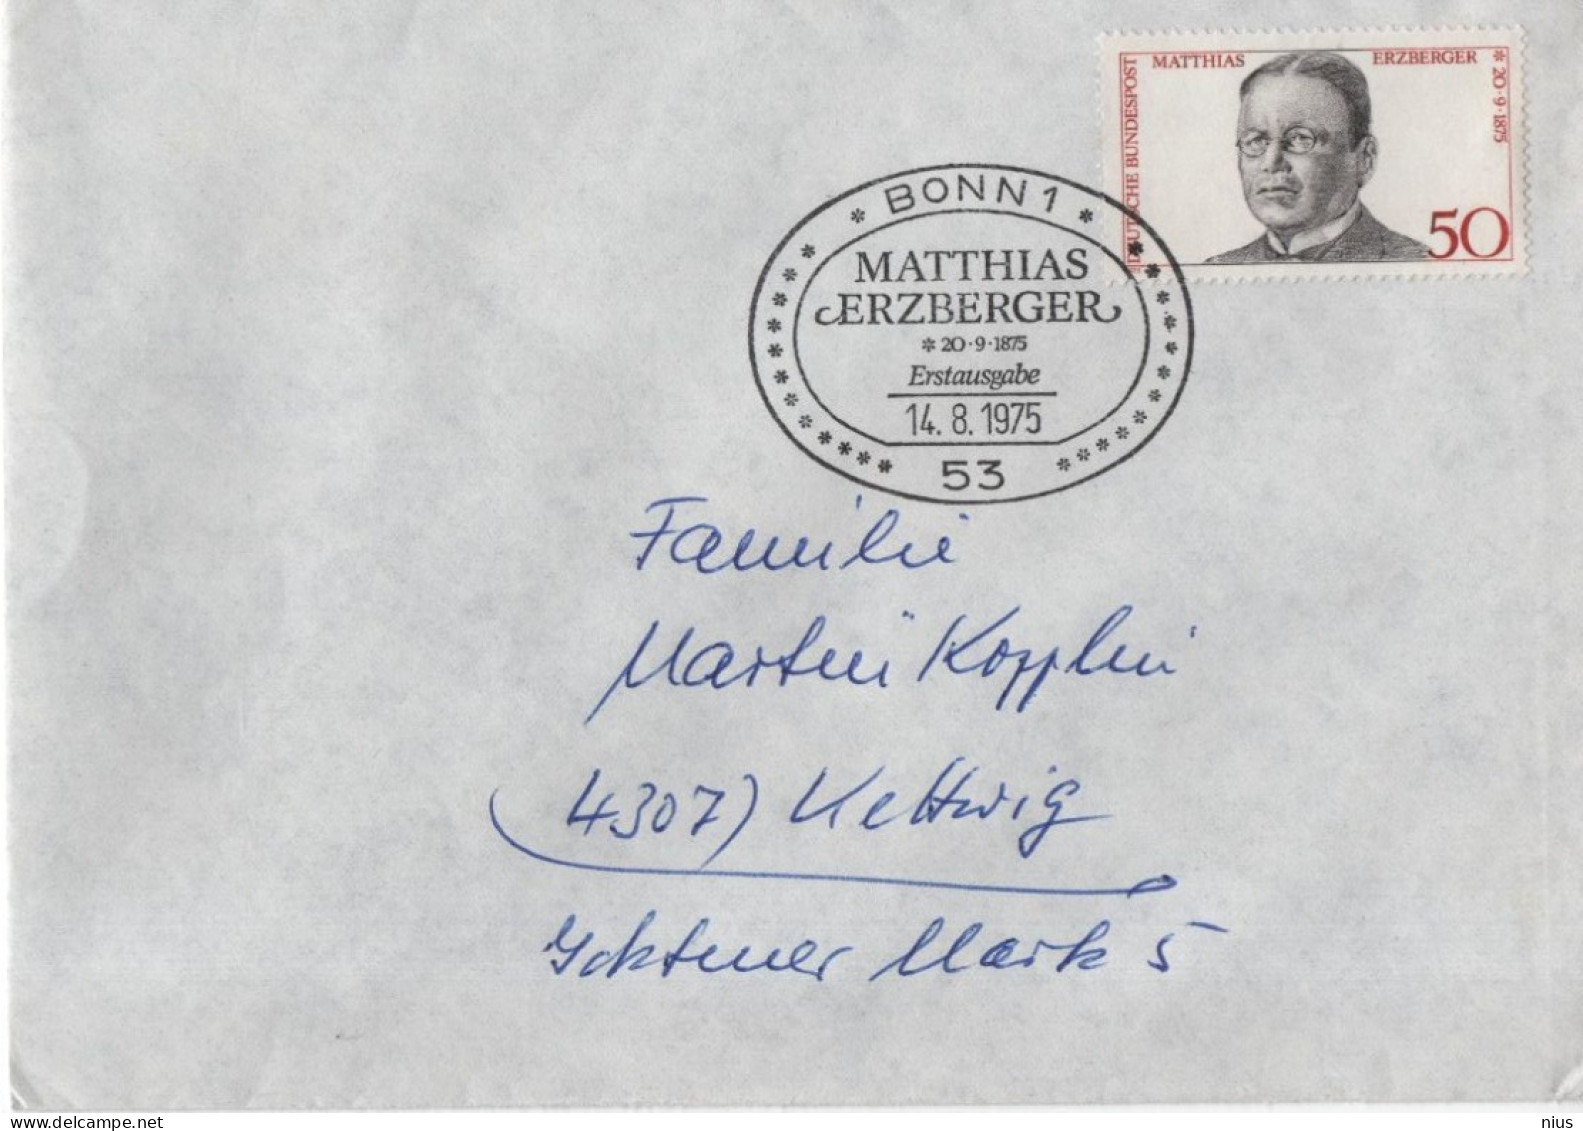 MATTHIAS ERZBERGER
* 20·9·1875
DEUTSCHE BUNDESPOST
50
* BONN 1 *
MATTHIAS
ERZBERGER
* 20·9·1875
Erstausgabe
14. 8. 1975
53
Familie
Martin Kopplin
4307) Kettwig
Ickterner Mark 5
www.delcampe.net
nius